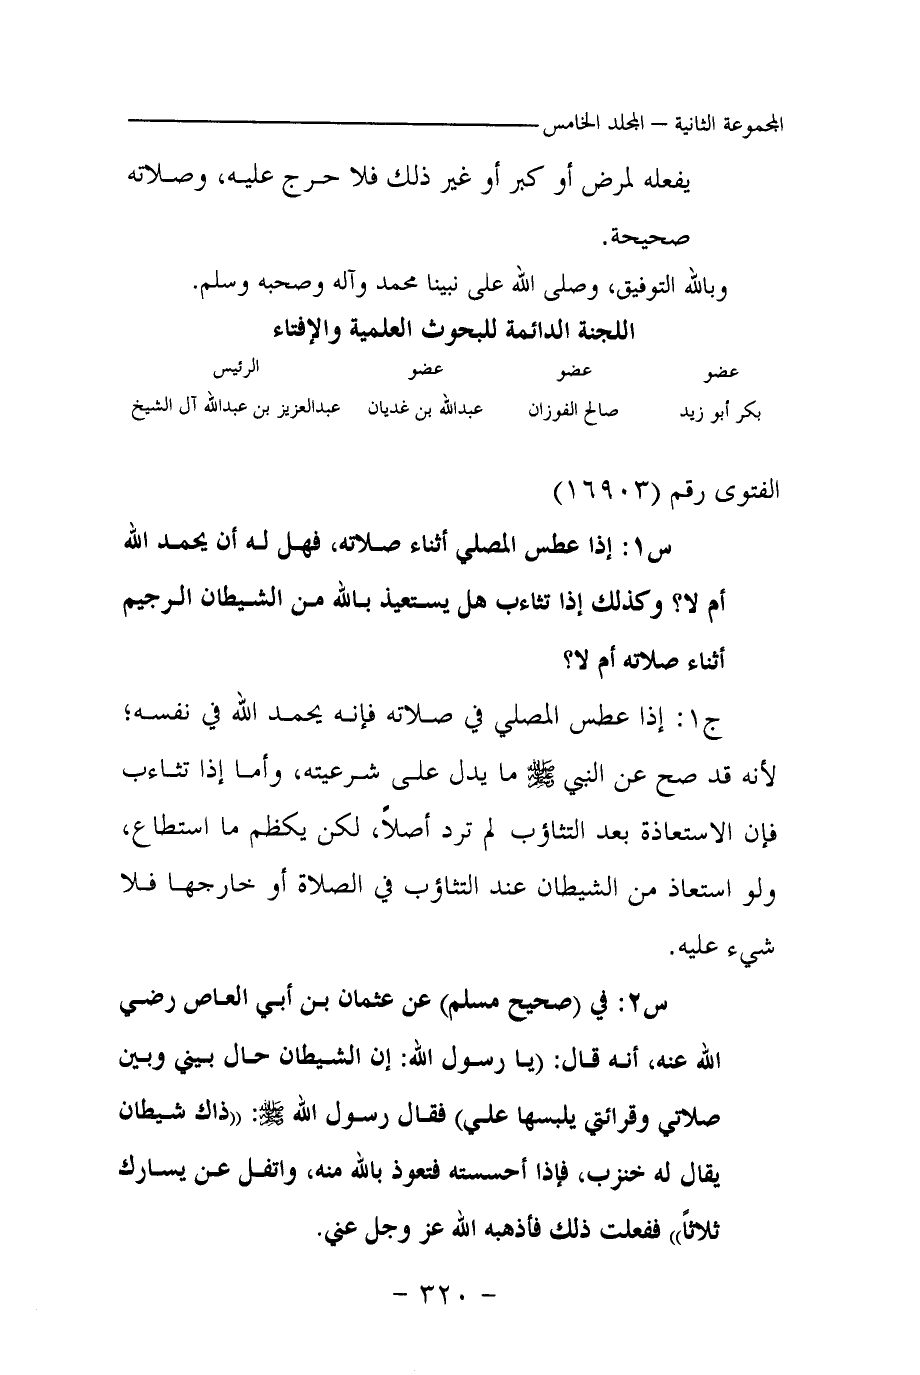 المجموعة الثانية – المجلد الخامس
يفعله لمرض أو كبر أو غير ذلك فلا حرج عليه، وصلاته
صحيحة.
وبالله التوفيق، وصلى الله على نبينا محمد وآله وصحبه وسلم.
اللجنة الدائمة للبحوث العلمية والإفتاء
عضو عضو عضو الرئيس
بكر أبو زيد صالح الفوزان عبدالله بن غديان عبدالعزيز بن عبدالله آل الشيخ
الفتوى رقم (١٦٩٠٣)
س١: إذا عطس المصلي أثناء صلاته، فهل له أن يحمد الله
أم لا؟ وكذلك إذا تثاءب هل يستعيذ بالله من الشيطان الرجيم
أثناء صلاته أم لا؟
ج١: إذا عطس المصلي في صلاته فإنه يحمد الله في نفسه؛
لأنه قد صح عن النبي ﷺ ما يدل على شرعيته، وأما إذا تثاءب
فإن الاستعاذة بعد التثاؤب لم ترد أصلاً، لكن يكظم ما استطاع،
ولو استعاذ من الشيطان عند التثاؤب في الصلاة أو خارجها فلا
شيء عليه.
س٢: في (صحيح مسلم) عن عثمان بن أبي العاص رضي
الله عنه، أنه قال: (يا رسول الله: إن الشيطان حال بيني وبين
صلاتي وقرائتي يلبسها علي) فقال رسول الله ﷺ: ((ذاك شيطان
يقال له خنزب، فإذا أحسسته فتعوذ بالله منه، واتفل عن يسارك
ثلاثاً)) ففعلت ذلك فأذهبه الله عز وجل عني.
- ٣٢٠ -